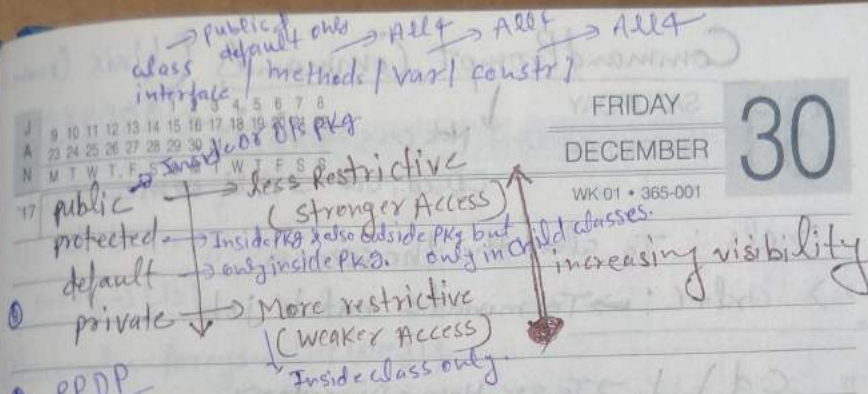 → public & default only → All 4 → All 4 → All 4
class
interface / methods / var / constr /
4 5 6 7 8
J 9 10 11 12 13 14 15 16 17 18 19 20
A 23 24 25 26 27 28 29 30
N M T W T F S W T F S S
'17
FRIDAY
30
DECEMBER
WK 01 • 365-001
→ Inside or O/s pkg
public → Less Restrictive
(Stronger Access)
protected → Inside pkg & also outside pkg but only in child classes.
default → only inside pkg.
private → More restrictive
(Weaker Access)
Inside class only.
increasing visibility
PPDP